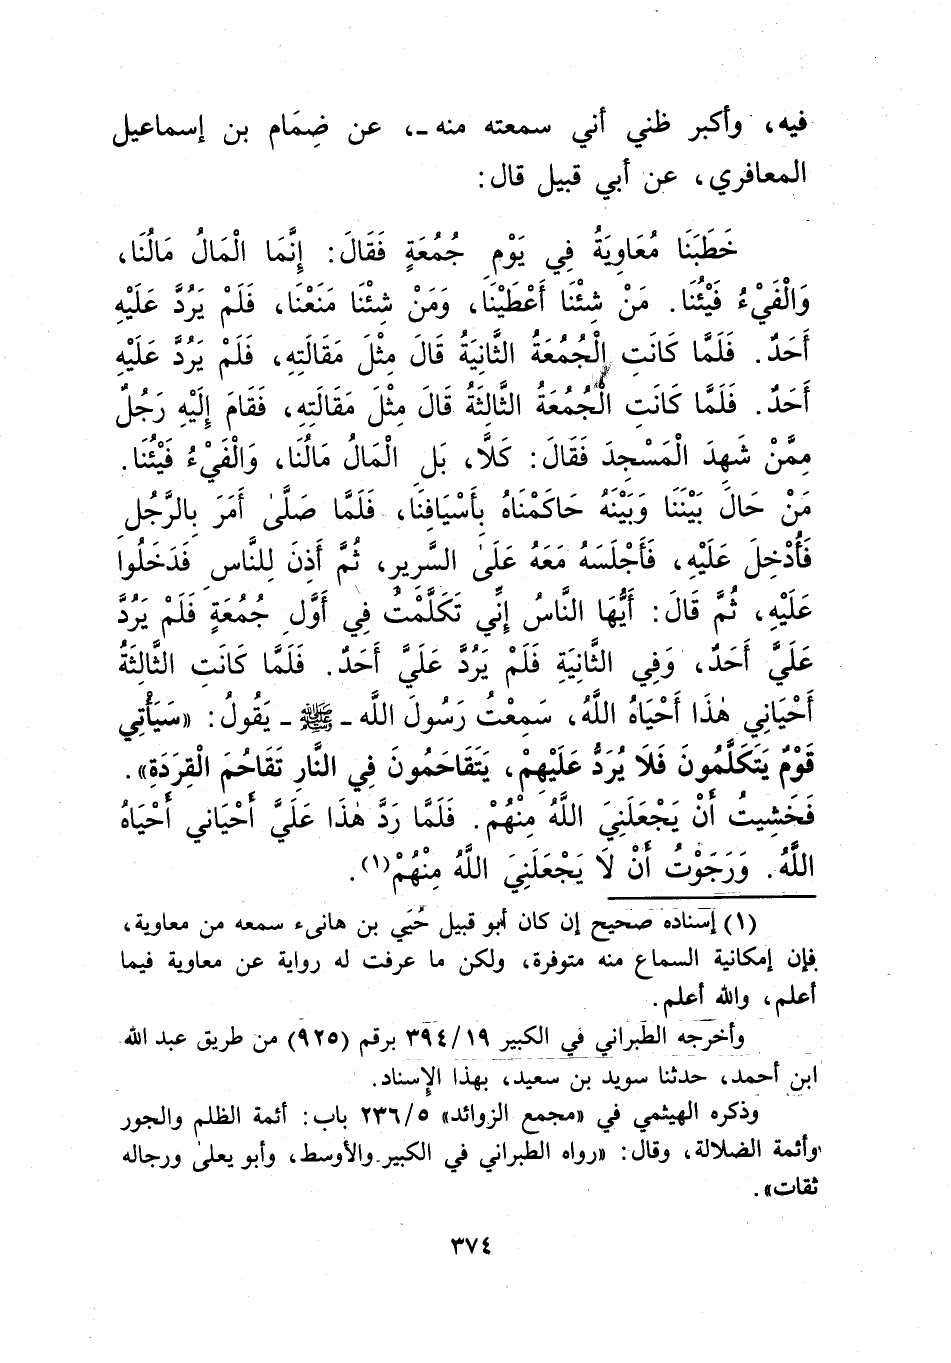 فيه، وأكبر ظني أني سمعته منه ـ، عن ضِمَام بن إسماعيل
المعافري، عن أبي قبيل قال:
خَطَبَنَا مُعَاوِيَةُ فِي يَوْمِ جُمُعَةٍ فَقَالَ: إِنَّمَا الْمَالُ مَالُنَا،
وَالْفَيْءُ فَيْئُنَا. مَنْ شِئْنَا أَعْطَيْنَا، وَمَنْ شِئْنَا مَنَعْنَا، فَلَمْ يَرُدَّ عَلَيْهِ
أَحَدٌ. فَلَمَّا كَانَتِ الْجُمُعَةُ الثَّانِيَةُ قَالَ مِثْلَ مَقَالَتِهِ، فَلَمْ يَرُدَّ عَلَيْهِ
أَحَدٌ. فَلَمَّا كَانَتِ الْجُمُعَةُ الثَّالِثَةُ قَالَ مِثْلَ مَقَالَتِهِ، فَقَامَ إِلَيْهِ رَجُلٌ
مِمَّنْ شَهِدَ الْمَسْجِدَ فَقَالَ: كَلَّا، بَلِ الْمَالُ مَالُنَا، وَالْفَيْءُ فَيْئُنَا.
مَنْ حَالَ بَيْنَنَا وَبَيْنَهُ حَاكَمْنَاهُ بِأَسْيَافِنَا، فَلَمَّا صَلَّىٰ أَمَرَ بِالرَّجُلِ
فَأُدْخِلَ عَلَيْهِ، فَأَجْلَسَهُ مَعَهُ عَلَىٰ السَّرِيرِ، ثُمَّ أَذِنَ لِلنَّاسِ فَدَخَلُوا
عَلَيْهِ، ثُمَّ قَالَ: أَيُّهَا النَّاسُ إِنِّي تَكَلَّمْتُ فِي أَوَّلِ جُمُعَةٍ فَلَمْ يَرُدَّ
عَلَيَّ أَحَدٌ، وَفِي الثَّانِيَةِ فَلَمْ يَرُدَّ عَلَيَّ أَحَدٌ. فَلَمَّا كَانَتِ الثَّالِثَةُ
أَحْيَانِي هٰذَا أَحْيَاهُ اللَّهُ، سَمِعْتُ رَسُولَ اللَّه ـ ﷺ ـ يَقُولُ: «سَيَأْتِي
قَوْمٌ يَتَكَلَّمُونَ فَلَا يُرَدُّ عَلَيْهِمْ، يَتَقَاحَمُونَ فِي النَّارِ تَقَاحُمَ الْقِرَدَةِ».
فَخَشِيتُ أَنْ يَجْعَلَنِيَ اللَّهُ مِنْهُمْ. فَلَمَّا رَدَّ هٰذَا عَلَيَّ أَحْيَاني أَحْيَاهُ
اللَّهُ. وَرَجَوْتُ أَنْ لَا يَجْعَلَنِيَ اللَّهُ مِنْهُمْ(١).
(١) إسناده صحيح إن كان أبو قبيل حُيَي بن هانىء سمعه من معاوية،
فإن إمكانية السماع منه متوفرة، ولكن ما عرفت له رواية عن معاوية فيما
أعلم، والله أعلم.
وأخرجه الطبراني في الكبير ٣٩٤/١٩ برقم (٩٢٥) من طريق عبد الله
ابن أحمد، حدثنا سويد بن سعيد، بهذا الإسناد.
وذكره الهيثمي في «مجمع الزوائد» ٢٣٦/٥ باب: أئمة الظلم والجور
وأئمة الضلالة، وقال: «رواه الطبراني في الكبير والأوسط، وأبو يعلىٰ ورجاله
ثقات».
٣٧٤